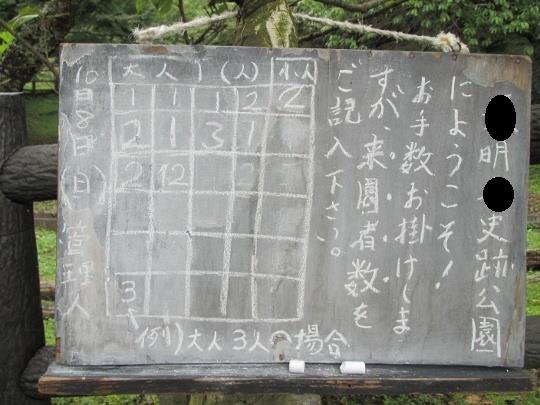 明史跡公園
にようこそ!
お手数お掛けしま
すが、来園者数を
ご記入下さい。
大人 (人) 小人
1 1 1 2 2
2 1 3 1
2 12
3
例)大人3人の場合
10月8日(日) 管理人